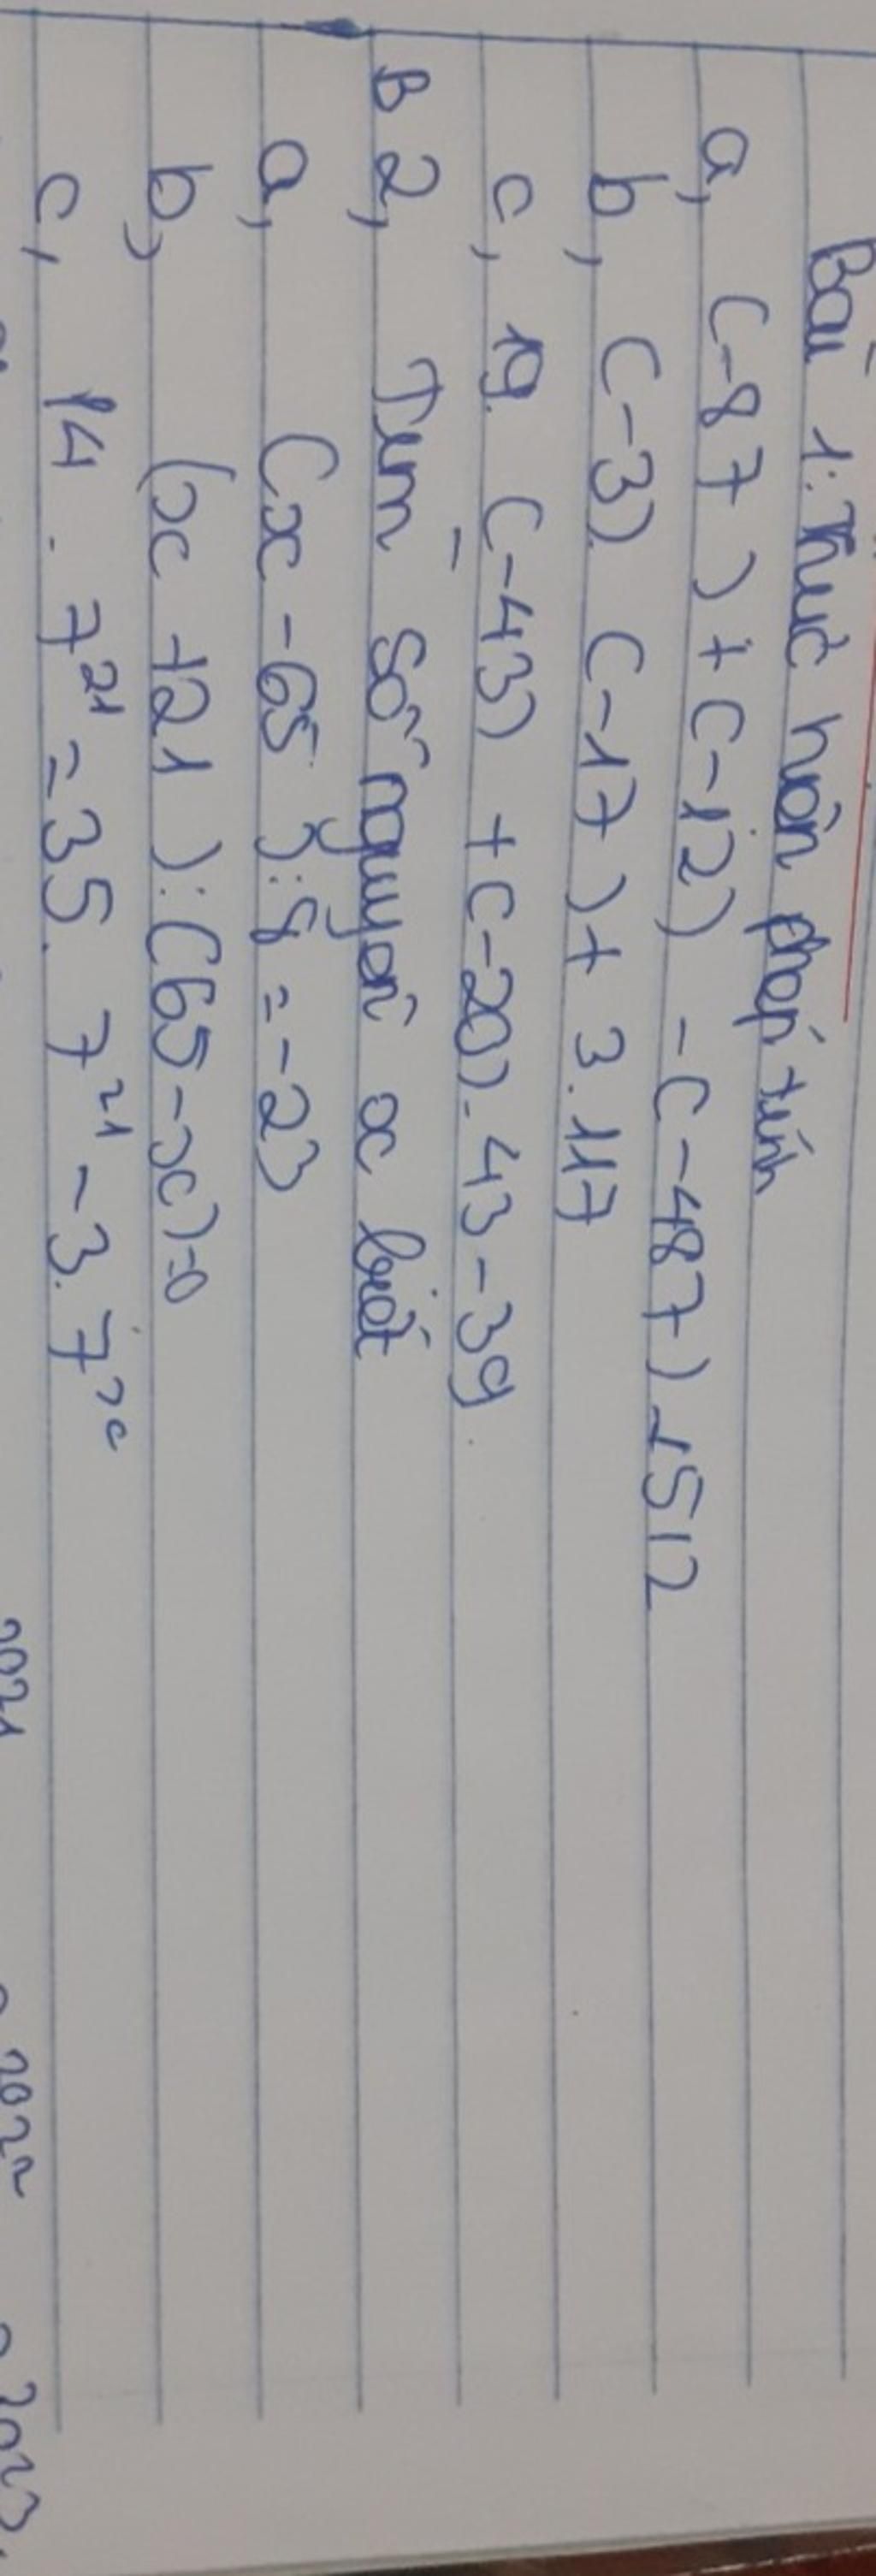 Bài 1: Thực hiện phép tính
a, (-87) + (-12) - (-487) + 512
b, (-3). (-17) + 3.117
c, 19. (-43) + (-20). 43 - 39
B 2, Tìm số nguyên x biết
a, (x - 65) : 8 = -23
b, (x + 21) : (65 - x) = 0
c, 14 . 7²¹ = 35. 7²¹ - 3. 7ˣ
2021 2022 2023